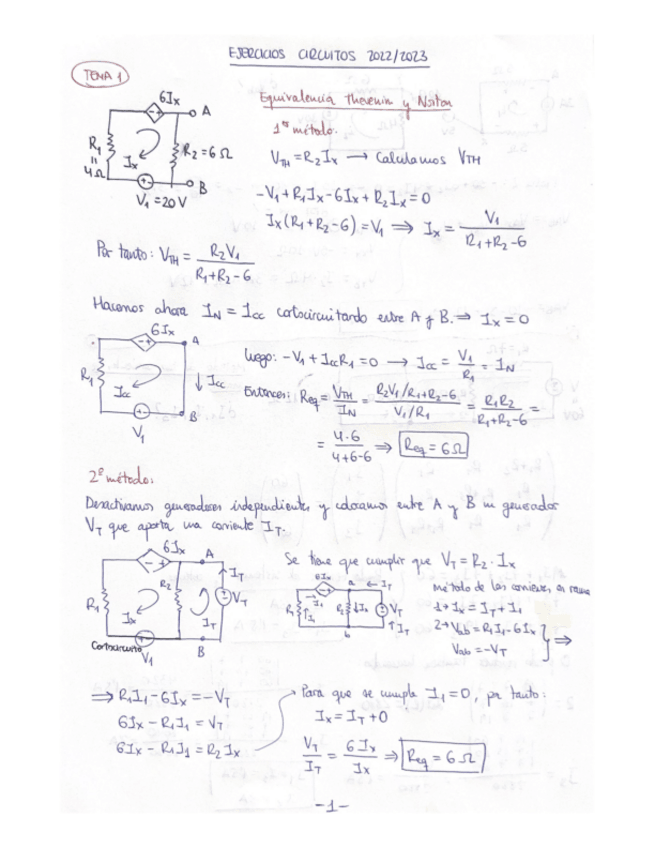 EJERCICIOS CIRCUITOS 2022/2023
TEMA 1
6Ix
A
R1
=
4Ω
Ix
R2=6Ω
B
V1=20V
Equivalencia Thevenin y Norton
1er método:
VTH=R2Ix → Calculamos VTH
-V1+R1Ix-6Ix+R2Ix=0
Ix(R1+R2-6)=V1 ⇒ Ix = V1 / R1+R2-6
Por tanto: VTH = R2V1 / R1+R2-6
Hacemos ahora IN = Icc cortocircuitando entre A y B. ⇒ Ix=0
6Ix
A
R1
Icc
↓ Icc
B
V1
Luego: -V1+IccR1=0 → Icc = V1/R1 = IN
Entonces: Req = VTH/IN = R2V1/R1+R2-6 / V1/R1 = R1R2 / R1+R2-6 =
= 4·6 / 4+6-6 ⇒ Req=6Ω
2º método:
Desactivamos generadores independientes y colocamos entre A y B un generador
VT que aporta una corriente IT.
6Ix
A
R1
Ix
R2
IT
VT
IT
Cortocircuito
V1
B
Se tiene que cumplir que VT=R2·Ix
6Ix
a
← IT
R1
I1
I1
R2
↓Ix
VT
↑ IT
b
método de las corrientes en rama
1→ Ix=IT+I1
2→ Vab=R1I1-6Ix
Vab=-VT
⇒
⇒ R1I1-6Ix=-VT
6Ix-R1I1=VT
6Ix-R1I1=R2Ix
Para que se cumpla I1=0, por tanto:
Ix=IT+0
VT/IT = 6Ix/Ix ⇒ Req=6Ω
-1-